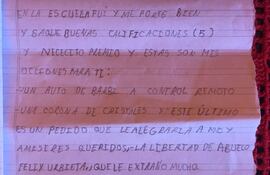 EN LA ESCUELA FUI Y ME PORTE BIEN
Y SAQUE BUENAS CALIFICACIONES (5)
Y NECECITO PREMIO Y ESTAS SON MIS
OPCIONES PARA TI:
-UN AUTO DE BARBI A CONTROL REMOTO
-UNA CORONA DE CRISTALES Y ESTE ÚLTIMO
ES UN PEDIDO QUE LE ALEGRARLA A MUY
A MIS SERES QUERIDOS, -LA LIBERTAD DE ABUELO
FELIX URBIETA, QUE LE EXTRAÑO MUCHO